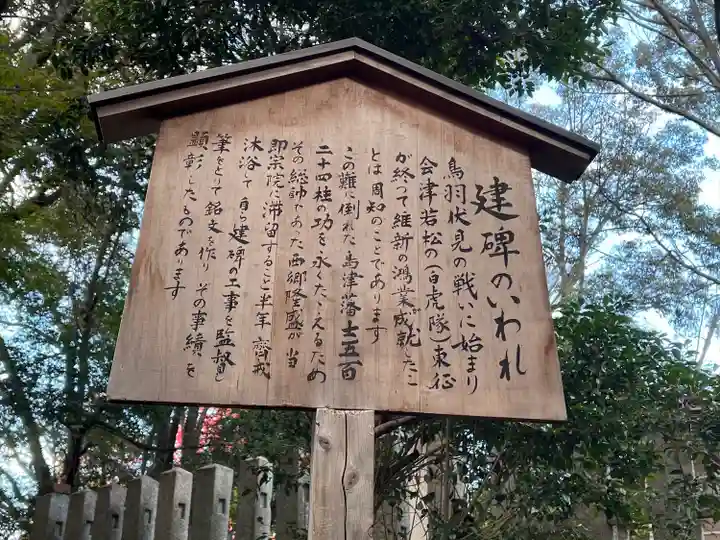 建碑のいわれ
鳥羽伏見の戦いに始まり
会津若松の(白虎隊)東征
が終って維新の鴻業成就したこ
とは周知のことであります
この難に倒れた島津藩士五百
二十四柱の功を永くたゝえるため
その総帥であった西郷隆盛が当
即宗院に滞留すること半年 齊戒
沐浴して自ら建碑の工事を監督し
筆をとして銘文を作り その事績を
顕彰したものであります